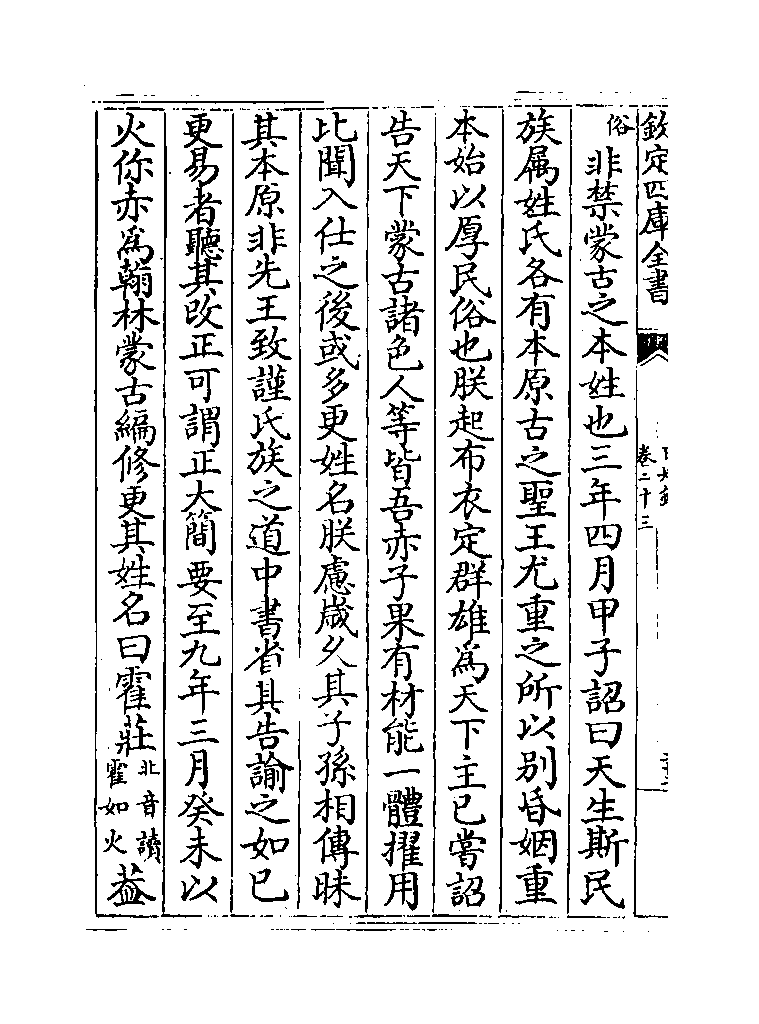 欽定四庫全書
卷二十三
俗非禁蒙古之本姓也三年四月甲子詔曰天生斯民
族属姓氏各有本原古之聖王尤重之所以别昏姻重
本始以厚民俗也朕起布衣定群雄為天下主已嘗詔
告天下蒙古諸色人等皆吾赤子果有材能一體擢用
比聞入仕之後或多更姓名朕慮嵗久其子孫相傳昧
其本原非先王致謹氏族之道中書省其告諭之如已
更易者聽其改正可謂正大簡要至九年三月癸未以
火你赤為翰林蒙古編修更其姓名曰霍莊北音讀霍如火葢